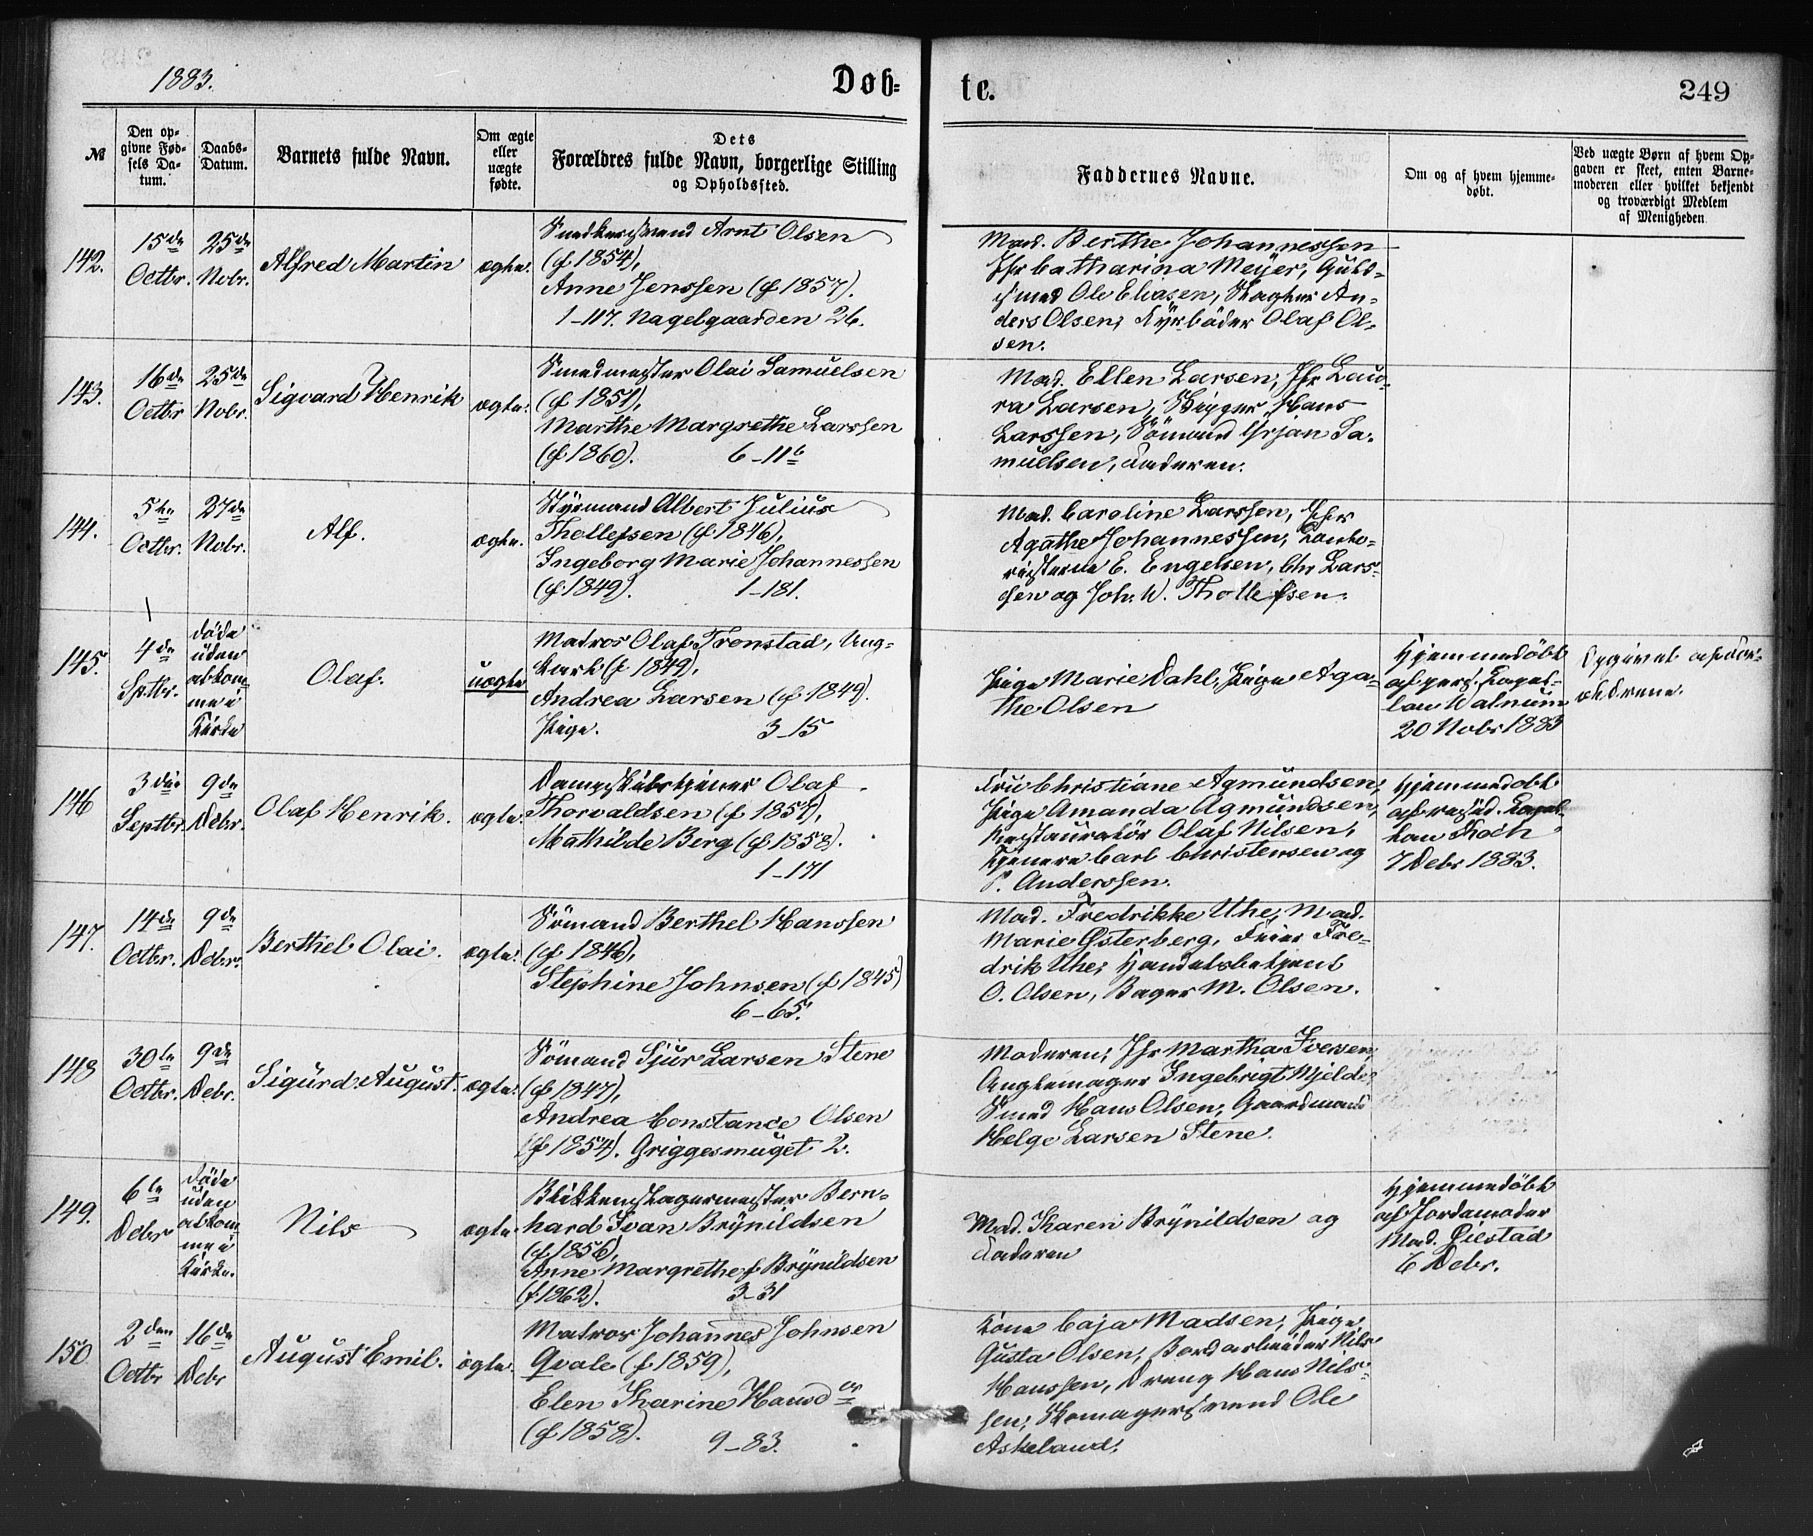 1883.
Døb-
te.
249
№
Den op-
givne Fød-
sels Da-
tum.
Daabs-
Datum.
Barnets fulde Navn.
Om ægte
eller
uægte
fødte.
Dets
Forældres fulde Navn, borgerlige Stilling
og Opholdssted.
Faddernes Navne.
Om og af hvem hjemme-
døbt.
Ved uægte Børn af hvem Op-
gaven er skeet, enten Barne-
moderen eller hvilket bekjendt
og troværdigt Medlem
af Menigheden.
142.
15de
Octbr.
25de
Nobr.
Alfred Martin
ægte.
Arnt Olsen
(f 1854),
Anne Jenssen (f 1857).
1-117. Nagelgaarden 26.
Mad. Berthe Johannessen
Jfr Catharina Meyer, Guld-
smed Ole Eliasen, An-
ders Olsen, Fyrbøder Olaf Ol-
sen.
143.
16de
Octbr
25de
Nobr.
Sigvard Henrik
ægte.
Smedmester Olai Samuelsen
(f 1851),
Marthe Margrethe Larssen
(f 1860). 6-11b
Mad. Ellen Larsen, Jfr Lau-
ra Larsen, Hans
Larssen, Sömand Ørjan Sa-
muelsen, Faderen.
144.
5te
Octbr.
27de
Nobr.
Alf.
ægte.
Styrmand Albert Julius
Thollefsen (f 1846),
Ingeborg Marie Johannessen
(f 1849). 1-181.
Mad. Caroline Larssen, Jfr
Agathe Johannessen, Konto-
risterne E. Engelsen, Chr Lars-
sen og Joh. W. Thollefsen.
145.
4de
Sptbr.
döde
uden
at kom-
me i
Kirke
Olaf.
uægte
Matros Olaf Tronstad, Ung-
karl (f 1849),
Andrea Larsen (f 1849).
Pige. 3-15
Pige Marie Dahl, Pige Aga-
the Olsen
Hjemmedöbt
af pers. Kapel-
lan Walnum
20 Nobr 1883
Opgivet af For-
ældrene.
146
3die
Septbr.
9de
Debr.
Olaf Henrik.
ægte.
Dampskibstjener Olaf
Thorvaldsen (f 1857),
Mathilde Berg (f 1858).
1-171
Fru Christiane Agmundsen,
Pige Amanda Agmundsen,
Restauratör Olaf Nilsen,
Tjenere Carl Christensen og
P. Anderssen.
Hjemmedöbt
af resid. Kapel-
lan Koch
7 Debr 1883.
147.
14de
Octbr.
9de
Debr.
Berthel Olai.
ægte.
Sömand Berthel Hanssen
(f 1846),
Stephine Johnsen (f 1845)
6-65.
Mad. Fredrikke Uhe, Mad.
Marie Østerberg, Feier Fre-
drik Uhe, Handelsbetjent
O. Olsen, Bager M. Olsen.
148
30te
Octbr.
9de
Debr.
Sigurd August.
ægte.
Sömand Sjur Larsen Stene
(f 1847),
Andrea Constance Olsen
(f 1854). Griggesmuget 2.
Moderen, Jfr Martha Iversen,
Ingebrigt Mjelde,
Smed Hans Olsen, Gaardmand
Helge Larsen Stene.
149.
6te
Debr
döde
uden
at kom-
me i
Kirke.
Nils
ægte
Blikkenslagermester Bern-
hard Ivan Brynildsen
(f 1856),
Anne Margrethe f Brynildsen
(f 1862). 3-31
Mad. Karen Brynildsen og
Faderen
Hjemmedöbt
af Jordemoder
Mad. Qiestad
6 Debr.
150
2den
Octbr
16de
Debr
August Emil.
ægte.
Matros Johannes Johnsen
Qvale (f 1859),
Elen Karine Hansdr
(f 1858). 9-83.
Kone Caja Madsen, Pige
Gusta Olsen, Nils
Hanssen, Dreng Hans Nils-
sen, Skomagersvend Ole
Askeland.